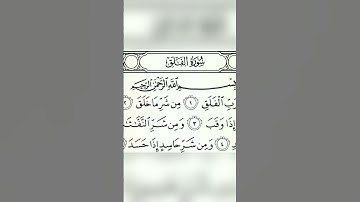 سُورَةُ الفَلَقِ
بِسْمِ اللَّهِ الرَّحْمَٰنِ الرَّحِيمِ
رَبِّ الْفَلَقِ ١ مِن شَرِّ مَا خَلَقَ ٢
إِذَا وَقَبَ ٣ وَمِن شَرِّ النَّفَّٰثَٰتِ
٤ وَمِن شَرِّ حَاسِدٍ إِذَا حَسَدَ